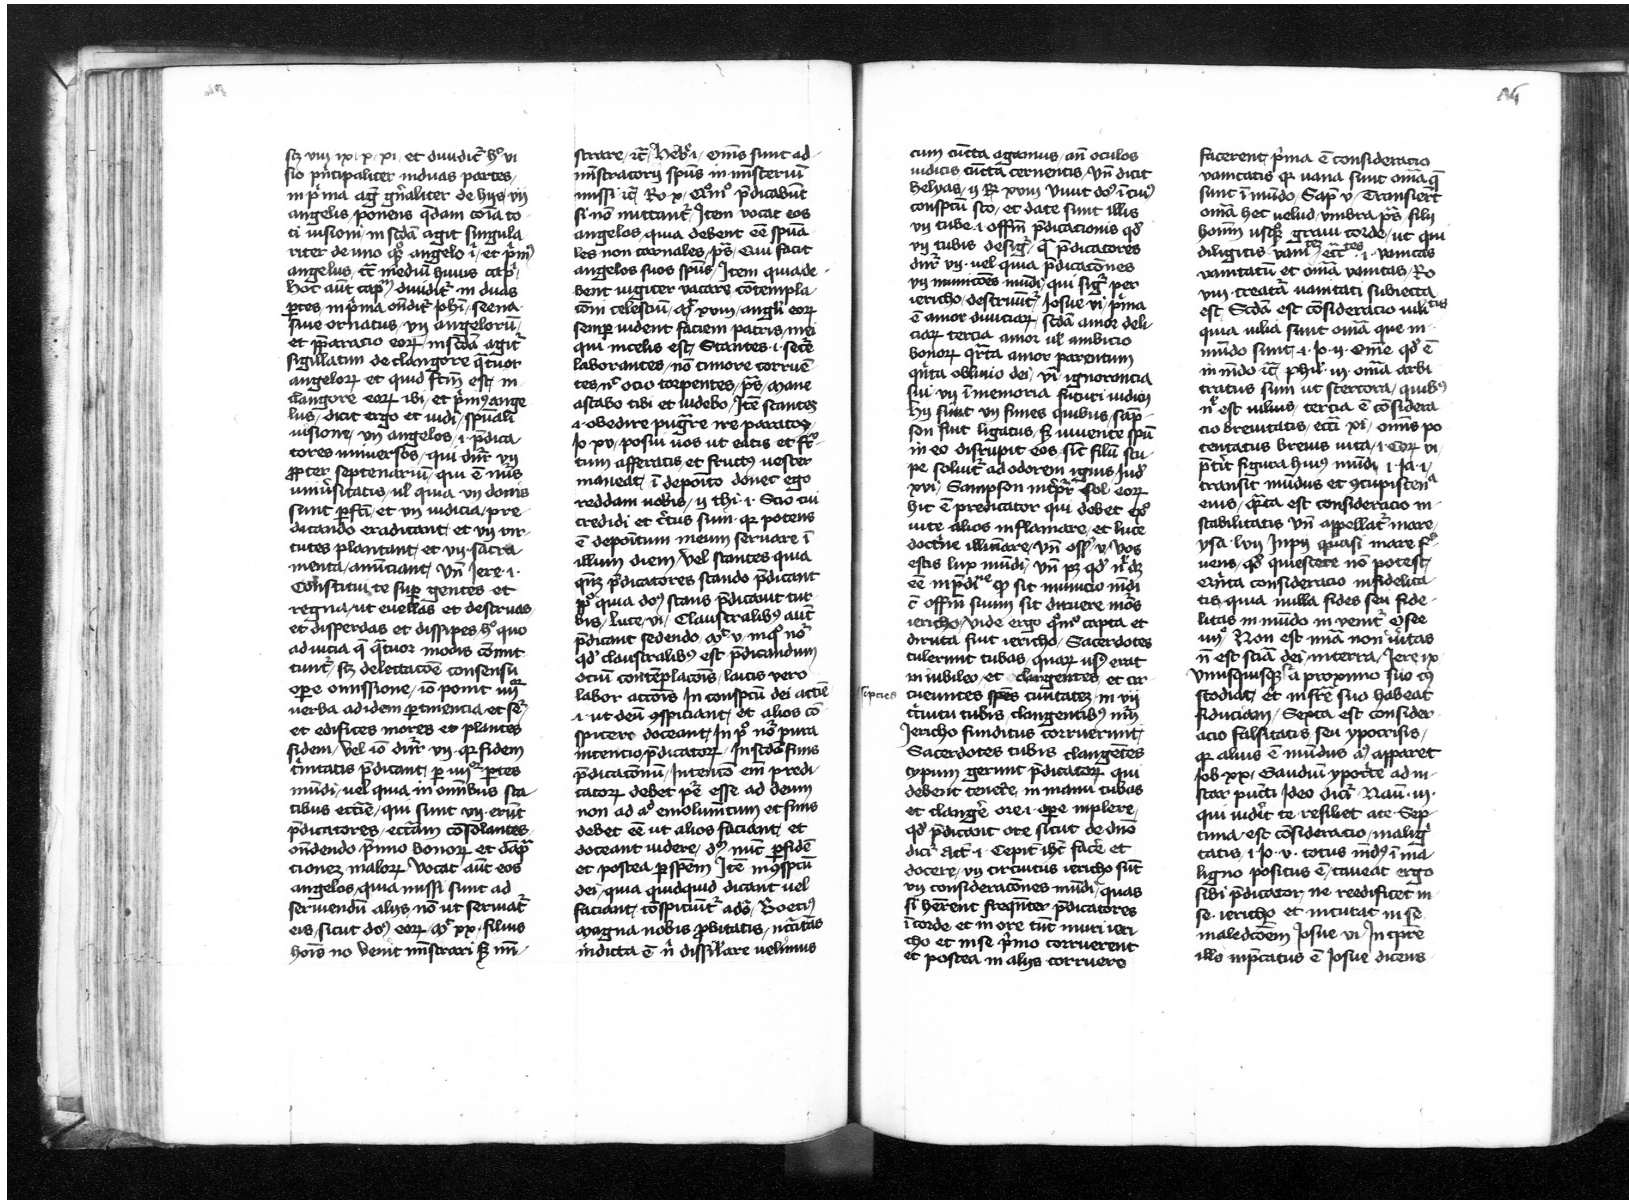 scz viii ix x xi et diuidit̃ hͦ vi
sio pñcipaliter in duas partes
in p̃ma agit gñaliter de hijs vij
angelis ponens q̃dam cõia to
ti visioni in scd̃a agit singula
riter de vno
angelus
hoc aut̃ capᵐ diuidit̃ in duas
ptes in p̃ma oñdit̃
siue ornatus vij angelorũ
et p̃paracio eoꝝ in scd̃a agit̃
sigillatim de clangore q̃tuor
angeloꝝ et quid fc̃m est in
clangore eoꝝ ibi et p̃mꝯ ange
lus dicit ergo et vidi spũali
visione vij angelos i p̃dica
tores vniuersos qui dñr vij
ꝓpter septenariũ qui ẽ nũs
vniũsitatis vl̃ quia vij donis
sunt pfc̃i et vij vicia pre
dicando eradicant et vij vir
tutes plantant et vij sacra
menta anũciant Vñ Jere i
Constitui te sup gentes et
regna vt euellas et destruas
et disperdas et dissipes hͦ quo
ad vicia q̃ q̃tuor modis cõmit
tunt̃ scz delectacõe consensu
ope omissione iõ ponit iiijᵒʳ
verba ad idem ptinencia et seqͬ
et edifices mores et plantes
fidem vel iõ dñr vij qꝛ fidem
t̃nitatis p̃dicant p iiijᵒʳ ptes
mũdi vel quia in omnibus sta
tibus eccl̃ie qui sunt vij erũt
p̃dicatores ecciam cõsolantes
oñdendo p̃mio bonoꝝ et dãpͣ
cionez maloꝝ Vocat aut̃ eos
angelos quia missi sunt ad
seruiendũ alijs nõ vt seruiat̃
eis sicut dñs eoꝝ Mͭ xx filius
hoĩs no venit mĩstrari sꝫ mi
strare ꝛc̃ Hebͬ i Om̃s sunt ad
mĩstratorij spũs in misteriũ
missi ꝛc̃ Ro x Quõ p̃dicabũt
si nõ mittant̃ Item vocat eos
angelos quia debent eẽ spũa
les non carnales pˢ Qui facit
angelos suos spũs Item quia de
bent iugiter vacare cõtempla
cõni celestiũ Mͭ xviij angl̃i eoꝝ
semp vident faciem patris mei
qui in celis est Stantes i secͬe
laborantes nõ timore corruẽ
tes nͨ ocio torpentes pˢ Mane
astabo tibi et videbo Itẽ stantes
i obedire pugͬre ire paratos
Jo xv posui vos vt eatis et frͨ
tum afferatis et fructꝯ vester
maneat ĩ deposito donec ego
reddam vobis ij thi i Scio cui
credidi et c̃tus sum qꝛ potens
ẽ depositum meum seruare ĩ
illum diem Vel stantes quia
p̃dicatores stando p̃dicant
quia dñs stans p̃dicauit tur
bis luce vi Claustralibꝯ aut̃
p̃dicant sedendo Mͭ v
qđ claustralibꝯ est p̃dicandum
ociũ contẽplacõis laicis vero
labor accõis In conspectu dei
i vt deũ ꝯspiciant et alios cõ
spicere doceant In pͦ noͬ pura
intencio p̃dicatoꝝ In scd̃o finis
p̃dicacõnũ Intencõ eĩ predi
catoꝝ debet pͬe esse ad deum
non ad aͦ emolumẽtum et finis
debet eẽ vt alios faciant et
doceant videre dꝯ nũc p fidẽ
et postea p spem Itẽ in ꝯspectu
dei quia quidquid dicant vel
faciant cõspiciũt̃ Boeciꝯ
Magna nobis ꝓbitatis
indicta ẽ ñ dissil̃are velimus
cum cũcta agamus añ oculos
iudicis cũcta cernentis Vñ dicit
helyas ij R xviij Viuit dñs ĩ cuiꝯ
conspectu sto et date sunt illis
vij tube i offm̃ p̃dicacionis qđ
vij tubis desigͬ qꝛ p̃dicatores
dñr vij vel quia p̃dicacões
vij municões mũdi qui sigͬ per
iericho destruũt̃ Josue vi p̃ma
ẽ amor diuiciaꝝ scd̃a amor deli
ciaꝝ tercia amor vl̃ ambicio
honoꝝ qͬrta amor parentum
qĩta obliuio dei vi ignorancia
sui vij ĩmemoria futuri iudicij
hij sũnt vij funes quibus samp
son fuit ligatus sꝫ iuuente spũ
in eo disrupit eos sic̃ filũ stu
pe soluit̃ ad odorem ignis Judͨ
xvi Sampson int̃p̃t̃ sol eoꝝ
hic ẽ predicator qui debet
vite alios inflam̃are et luce
doct̃ne illuĩare Vñ
estis lux mũdi Vñ pꝫ qđ ñ dꝫ
eẽ qͦ sit municio mũdi
c̃ offm̃ suum sit diruere mũs
iericho Vide ergo quõ capta et
diruta fuit iericho Sacerdotes
tulerunt tubas quaꝝ vsꝯ erat
in iubileo et clangentes et cir
cueuntes septies ciuitatez in vij
c̃cuitu tubis clangentibꝯ mũi
Jericho funditus corruerunt
Sacerdotes tubis clangẽtes
typum gerunt p̃dicatoꝝ qui
debent tenere in manu tubas
et clangͬe ore i ope inplere
qđ p̃dicant ore sicut de dño
dicͬ act̃ i Cepit ih̃c facͬe et
docere vij circuitus iericho sũt
vij consideracões mũdi quas
si hr̃ent freqñter p̃dicatores
ĩ corde et in ore tũc muri ieri
cho et in se p̃mo corruerent
et postea in alijs corruere
septies
facerent p̃ma ẽ consideracio
vanitatis qꝛ vana sunt om̃ia q̃
sunt ĩ mũdo Sapͭ v Transierũt
om̃ia hec velud vmbra pˢ filij
hoĩm vsqꝫ graui corde vt qui
diligitis vanitatẽ eccͤs i vanitas
vanitatũ et om̃ia vanitas Ro
viij creatã vanitati subiecta
est Scd̃a est cõsideracio vilitatis
quia vilia sunt om̃ia que in
mũdo sunt i Jo ij Om̃e qđ ẽ
in mũdo ꝛc̃ Phil̃ iij om̃ia arbi
tratus sum vt stercora quibꝯ
nͨ est vilius tercia ẽ cõsidera
cio breuitatis eccͥ xi omĩs po
tentatus breuis vita i Cor vi
p̃tĩt figura huiꝯ mũdi i Jo i
transit mũdus et ꝯcupiscenͣ
eius qͬrta est consideracio in
stabilitatis Vñ appellat̃ mare
ysa lvij Jnpij quasi mare
uens qđ quiescere nõ potest
Qĩnta consideracio infidelita
tis quia nulla fides seu fide
litas in mũdo in venit̃ Osee
iiijͦ Non est mĩa non v̾itas
ñ est sciã dei in terra Jere ix
Vnusquisqꝫ a proximo suo cꝯ
stodiat et in fr̃e suo habeat
fiduciam Septa est consider
acio falsitatis seu ypocrisis
qꝛ alius ẽ mũdus aͦ apparet
Job xx Gaudiũ ypocͬte ad in
star pũcti Jdeo dicͬ Naũ iij
qui vidĩt te resiliet a te Sep
tima est cõsideracio malig
tatis i Jo v totus mũdꝯ ĩ ma
ligno positus ẽ caueat ergo
sibi p̃dicator ne reedificet in
se iericho et incurrat in se
maledicõem Josue vi In tp̃re
illo inp̃catus ẽ Josue dicens